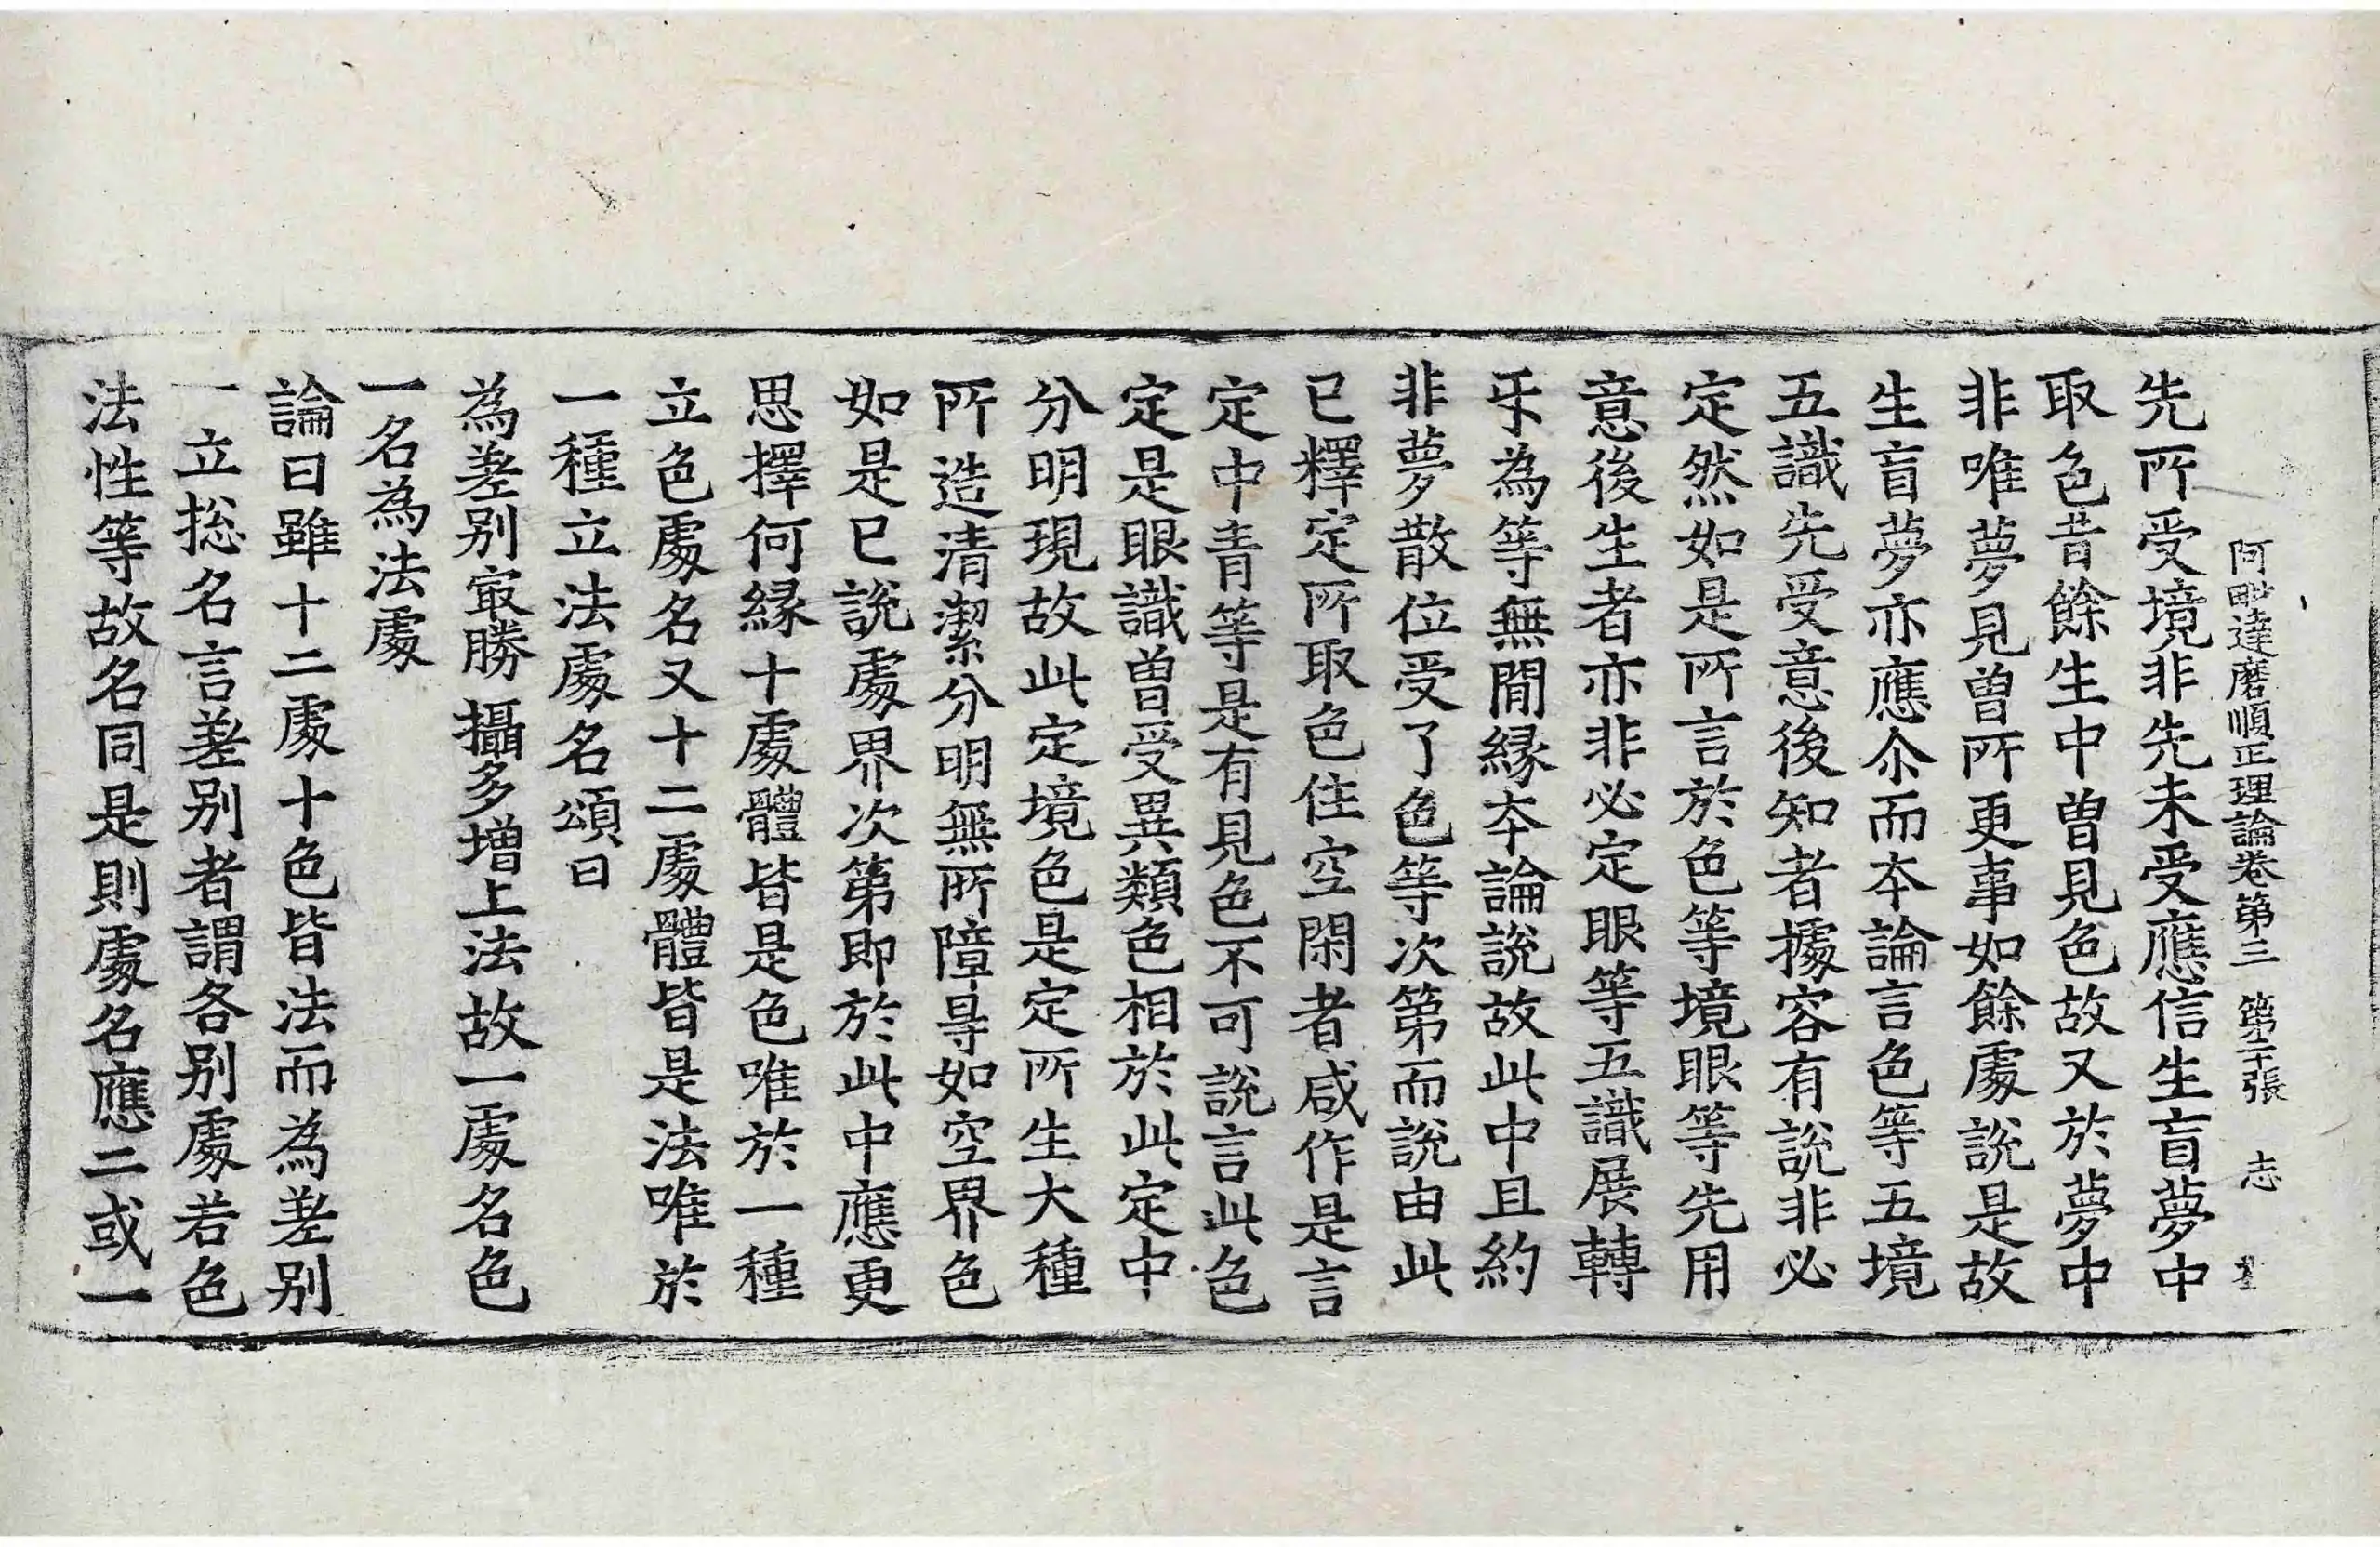 阿毗達磨順正理論卷第三 第二十張 志
先所受境非先未受應信生盲夢中
取色昔餘生中曽見色故又於夢中
非唯夢見曽所更事如餘處說是故
生盲夢亦應尒而夲論言色等五境
五識先受意後知者據容有說非必
定然如是所言於色等境眼等先用
意後生者亦非必定眼等五識展轉
㸦為等無閒縁夲論說故此中且約
非夢散位受了色等次第而說由此
已釋定所取色住空閑者咸作是言
定中青等是有見色不可說言此色
定是眼識曽受異類色相於此定中
分明現故此定境色是定所生大種
所造清潔分明無所障㝵如空界色
如是已說處界次第即於此中應更
思擇何縁十處體皆是色唯於一種
立色處名又十二處體皆是法唯於
一種立法處名頌曰
為差别㝡勝 攝多増上法故一處名色
一名為法處
論曰雖十二處十色皆法而為差别
一立捴名言差别者謂各别處若色
法性等故名同是則處名應二或一